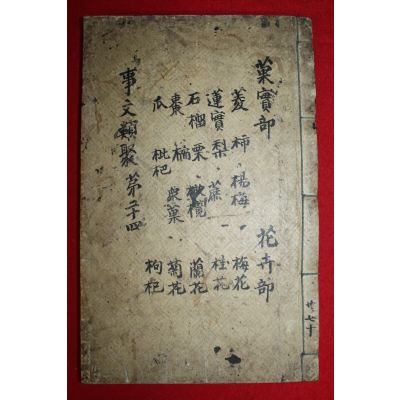 菓實部　花卉部
菱　柿　楊梅　梅花
蓮實　梨　蔗　桂花
石榴　栗　橄欖　蘭花
棗　橘　衆菓　菊花
瓜　枇杷　枸杞
事文類聚　第二十四
共七十